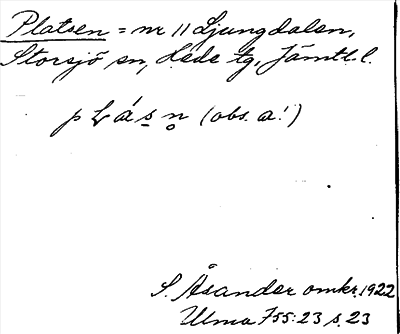 Platsen = nr 11 Ljungdalen,
Storsjö sn, Hede tg, Jämtl. l.
p L á s n (obs. a!)
S. Åsander omkr. 1922
Ulma 755:23 s. 23